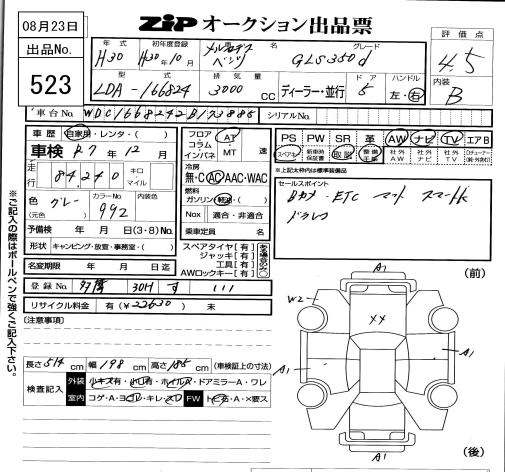 08月23日
出品No.
523
ZIP オークション出品票
評価点
4.5
内装
B
年式 初年度登録 車名 グレード
H30 H30年10月 メルセデスベンツ GLS350d
型式 排気量 ドア ハンドル
LDA-166824 3000 CC ディーラー・並行 5 左・右
車台No. WDC1668242B173885 シリアルNo.
車歴 自家用・レンタ・( )
車検 R7年12月
走行 84,240 キロ マイル
色 グレー カラーNo. 992 内装色
(元色)
予備検 年 月 日(3・8)No.
形状 キャンピング・放宣・事務室・( )
名変期限 年 月 日迄
フロア コラム インパネ AT・MT 速
冷房
無・C AC AAC・WAC
燃料
ガソリン・軽油・( )
Nox 適合・非適合
乗車定員 名
スペアタイヤ[有]
ジャッキ[有]
工具[有]
AWロックキー[有]
ある場合のみ○
PS PW SR 革 AW ナビ TV エアB
スペアキー 新車時保証書 取説 整備手帳 社外AW 社外ナビ 社外TV
※上記太枠内は標準装備品
セールスポイント
Bカメ・ETC マット スマートk
ドラレコ
登録No. 301 す 111
リサイクル料金 有(¥22630) 未
(注意事項)
長さ514cm 幅198cm 高さ185cm (車検証上の寸法)
検査記入 外装 小キズ有・小凹有・ホイルA・ドアミラーA・ワレ
室内 コゲ・A・ヨゴレ・キレ・スレ FW トビ石・A・X要ス
※ご記入の際はボールペンで強くご記入下さい。
(前)
A1
W2
XX
A1
A1
A1
(後)